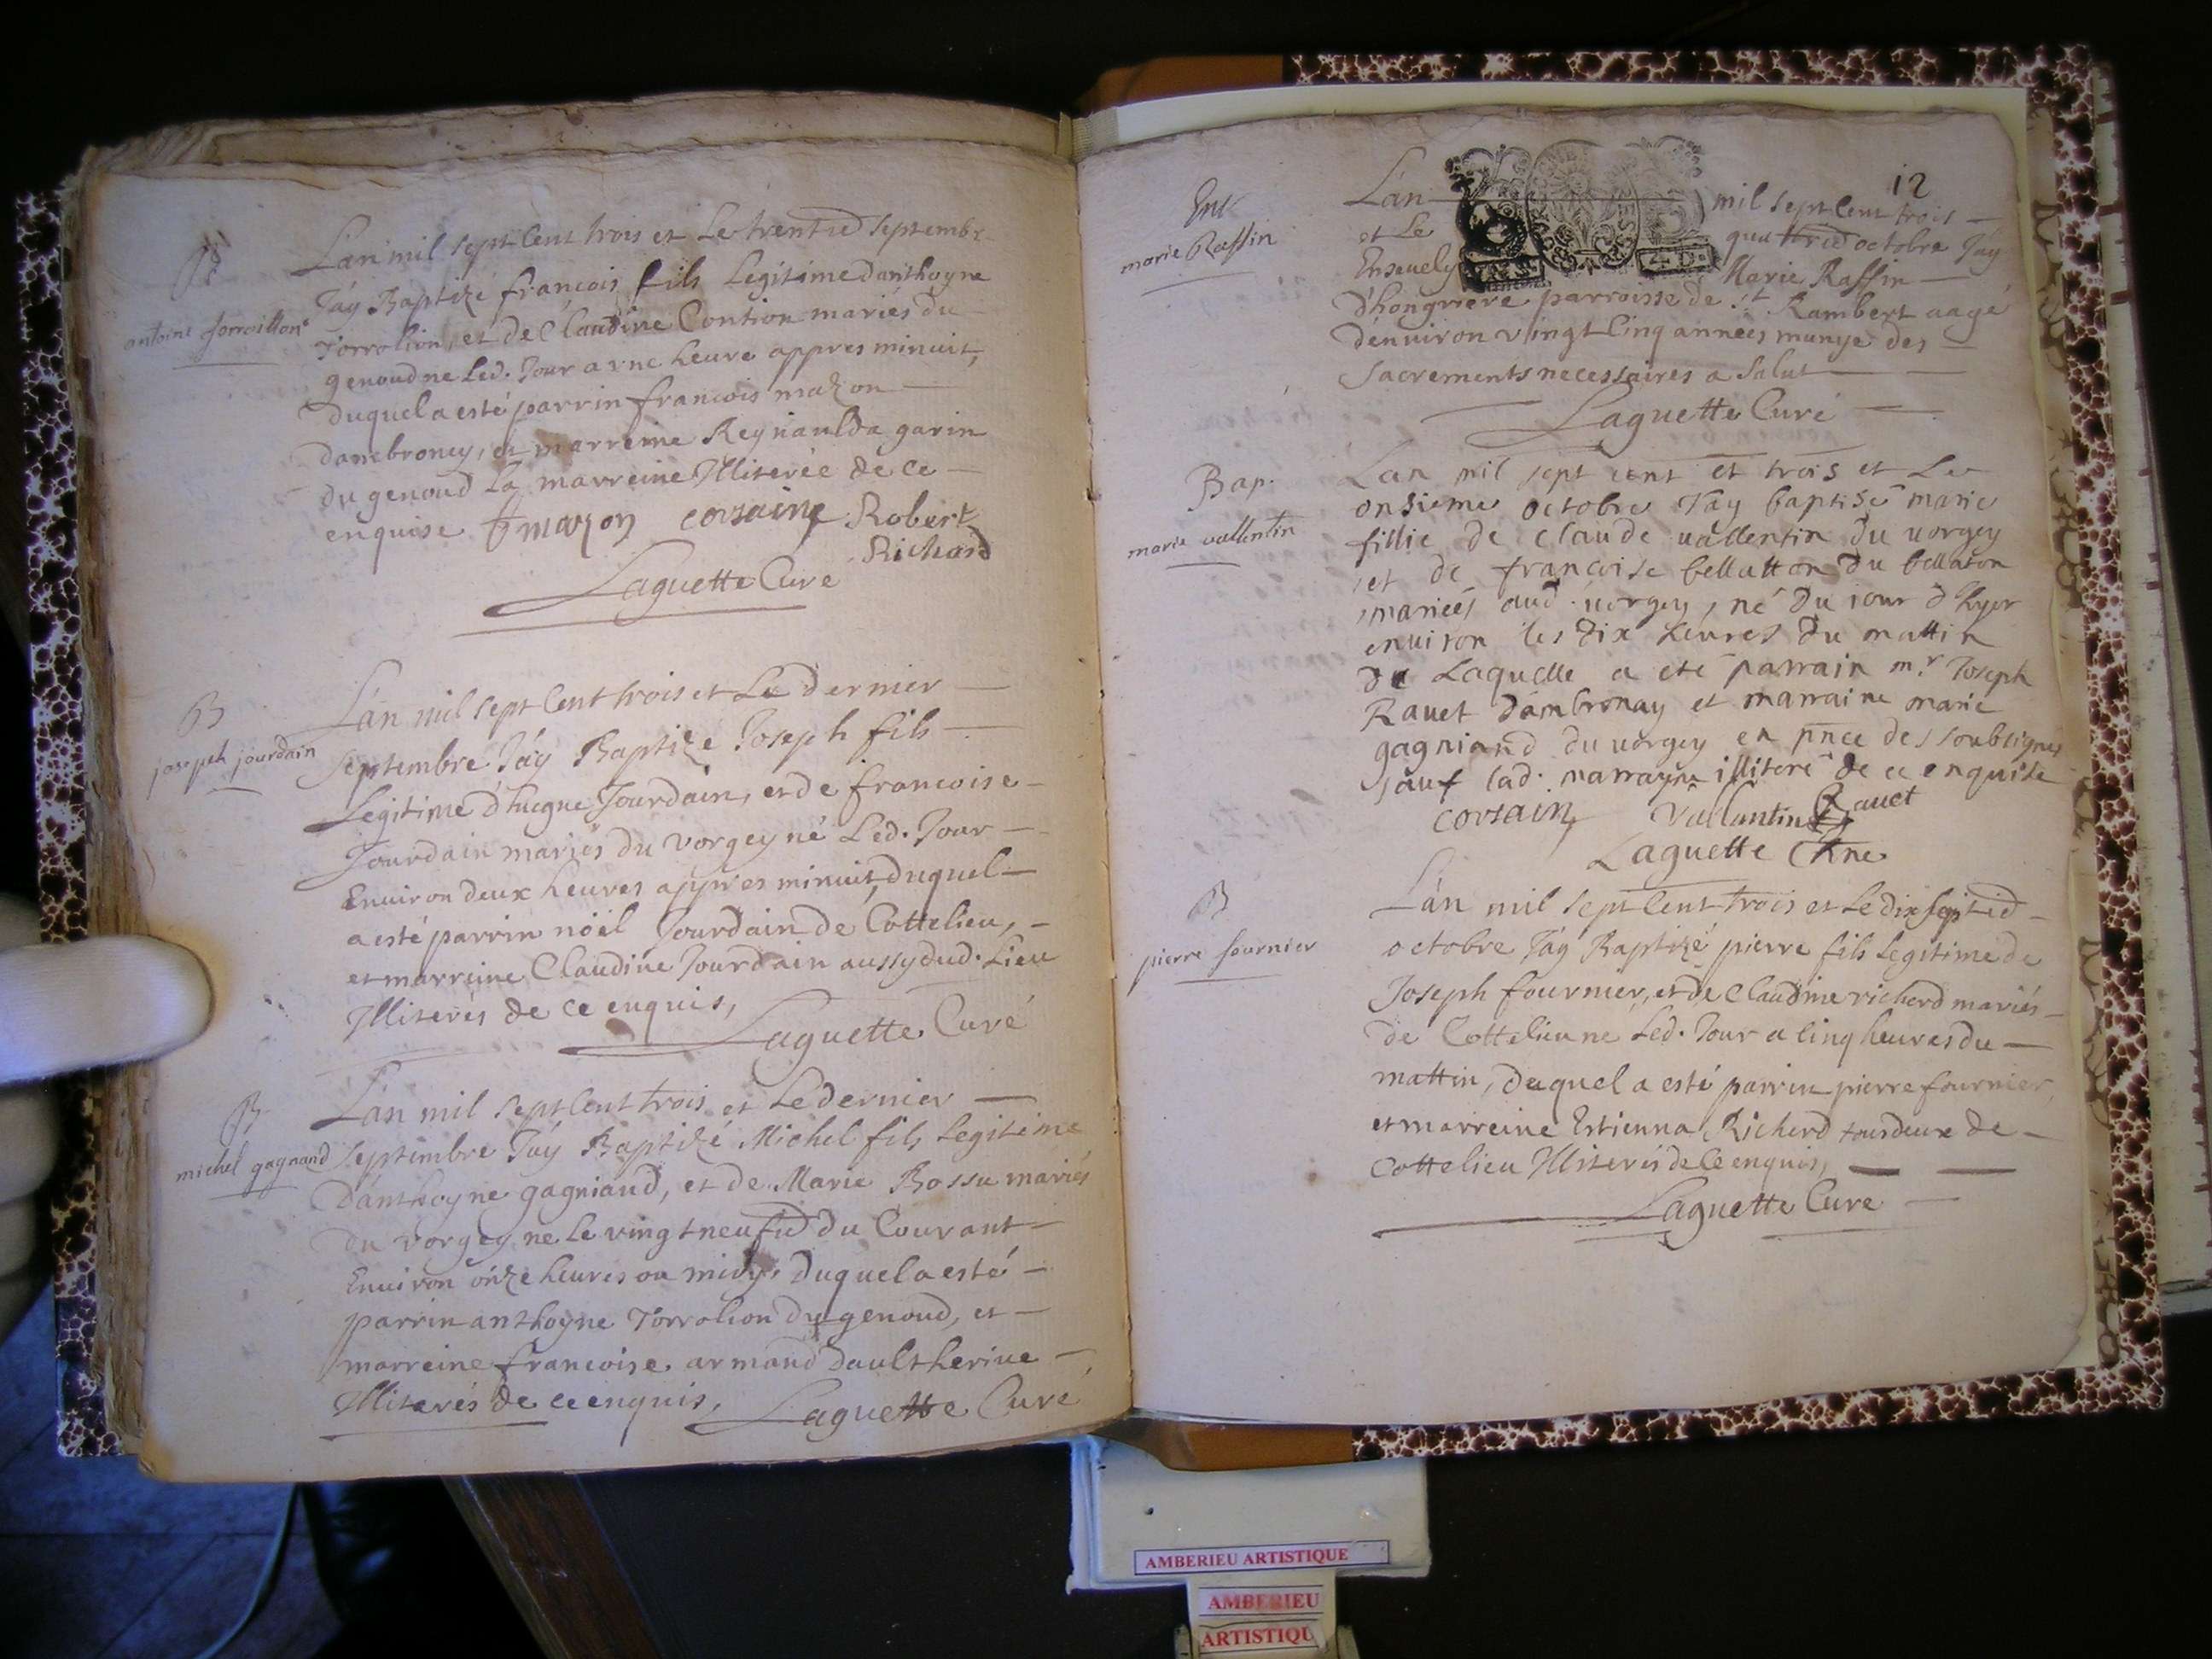 B
antoine
L'an mil sept Cent trois et Le trentie septembr
J'áy Baptizé francois fils Legitime d'anthoyne
Torrolion, et de Claudine Contion mariés du
genoud ne Led. Jour a vne heure appres minuit,
duquel a esté parrin francois mazon
dambroney, et marreine Reynaulda garin
du genoud La marreine Illiterée de ce
enquise f mazon corsaing Robert
Richard
Laguette Curé
B
joseph jourdain
L'an mil sept Cent trois et Le dernier
Septembre J'áy Baptizé Joseph fils
Legitime d'hugne Jourdain, et de francoise
Jourdain mariés du vorgey né Led. Jour
Enuiron deux heures appres minuit, duquel
a esté parrin nöel Jourdain de Cottelieu,
et marreine Claudine Jourdain aussy dud. Lieu
Illiterés de ce enquis,
Laguette Curé
B
michel gagnand
L'an mil sept Cent trois et Le dernier
Septembre J'áy Baptizé Michel fils Legitime
D'anthoyne gagniand, et de Marie Bossu mariés
du vorgey ne Le vingt neufie du Courant
Enuiron onze heures ou midy, duquel a esté
parrin anthoyne Torrolion du genoud, et
marreine francoise armand daultheriue
Illiterés de ce enquis, Laguette Curé
12
Ent
marie Raffin
L'an mil sept Cent trois
et Le quattrie octobre J'áy
Enseuely Marie Raffin
d'hongriere parroisse de St. Rambert aagé
d'enuiron vingt Cinq années munye des
Sacrements necessaires a Salut
Laguette Curé
Bap.
marie vallentin
Lan mil sept cent et trois et Le
onsieme octobre J'ay baptisé marie
fillie de claude uallentin du uorgey
et de francoise bellatton du bellaton
mariées aud. uorgey, né du iour d'hyer
enuiron les dix heures du mattin
de Laquelle a eté parrain mr. Joseph
Rauet d'ambronay et marraine marie
gagniand du uorgey en pnce des soubsignés
sauf lad. marrayne illiteré de ce enquise
corsain Vallantin Rauet
Laguette Cure
B
pierre fournier
L'an mil sept Cent trois et Le dix septie
octobre J'áy Baptizé pierre fils Legitime de
Joseph fournier, et de Claudine richerd mariés
de Cottelieu ne Led. Jour a Cinq heures du
mattin, duquel a esté parrin pierre fournier,
et marreine Estienna Richerd tous deux de
Cottelieu Illiterés de Ce enquis,
Laguette Curé
AMBERIEU ARTISTIQUE
AMBERIEU
ARTISTIQU